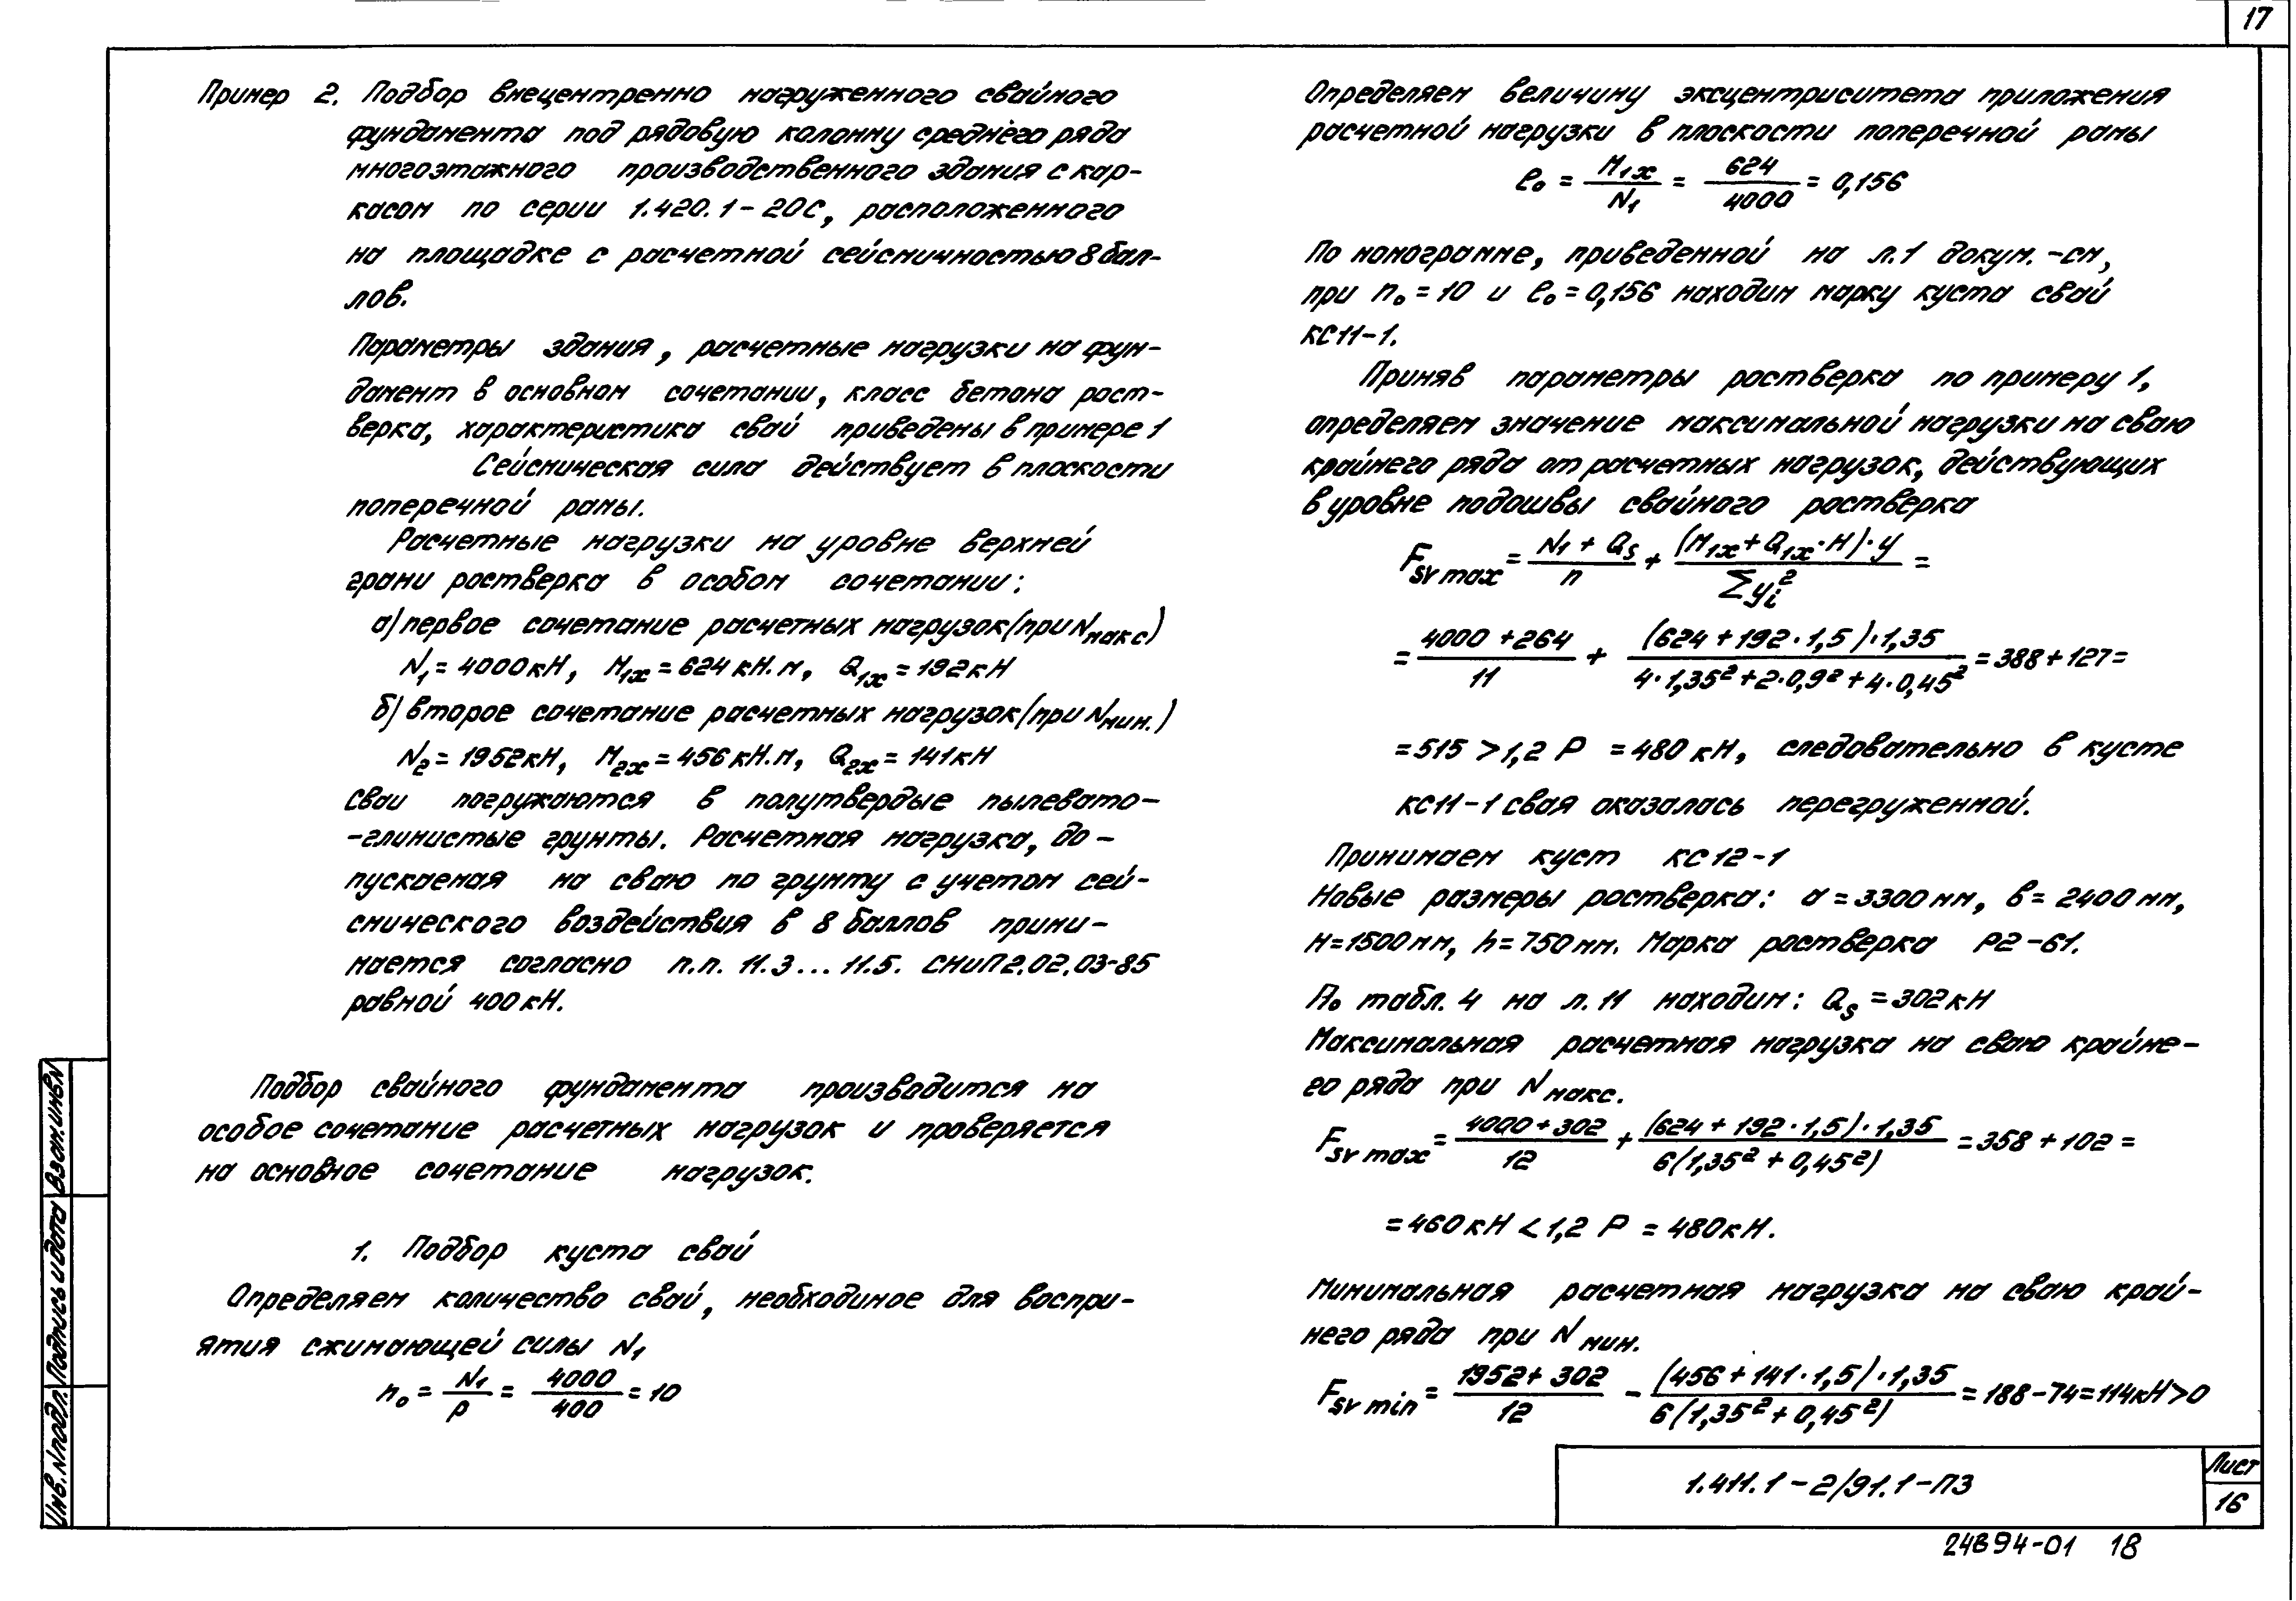 17
Пример 2. Подбор внецентренно нагруженного свайного
фундамента под рядовую колонну среднего ряда
многоэтажного производственного здания с кар-
касом по серии 1.420.1-20С, расположенного
на площадке с расчетной сейсмичностью 8 бал-
лов.
Параметры здания, расчетные нагрузки на фун-
дамент в основном сочетании, класс бетона рост-
верка, характеристика свай приведены в примере 1
Сейсмическая сила действует в плоскости
поперечной рамы.
Расчетные нагрузки на уровне верхней
грани ростверка в особом сочетании:
а) первое сочетание расчетных нагрузок (при Nмакс)
N₁ = 4000кН, M₁ₓ = 624 кН.м, Q₁ₓ = 192кН
б) второе сочетание расчетных нагрузок (при Nмин.)
N₂ = 1952кН, M₂ₓ = 456 кН.м, Q₂ₓ = 141кН
Сваи погружаются в полутвердые пылевато-
-глинистые грунты. Расчетная нагрузка, до-
пускаемая на сваю по грунту с учетом сей-
смического воздействия в 8 баллов прини-
мается согласно п.п. 11.3...11.5. СНиП 2.02.03-85
равной 400 кН.
Подбор свайного фундамента производится на
особое сочетание расчетных нагрузок и проверяется
на основное сочетание нагрузок.
1. Подбор куста свай
Определяем количество свай, необходимое для воспри-
ятия сжимающей силы N₁
n₀ = N₁/P = 4000/400 = 10
Определяем величину эксцентриситета приложения
расчетной нагрузки в плоскости поперечной рамы
e₀ = M₁ₓ/N₁ = 624/4000 = 0,156
По номограмме, приведенной на л.1 докум. -см,
при n₀ = 10 и e₀ = 0,156 находим марку куста свай
КС11-1.
Приняв параметры ростверка по примеру 1,
определяем значение максимальной нагрузки на сваю
крайнего ряда от расчетных нагрузок, действующих
в уровне подошвы свайного ростверка
Fsv max = (N₁ + Qs)/n + (M₁ₓ + Q₁ₓ · H) · y/Σyᵢ² =
= (4000 + 264)/11 + (624 + 192 · 1,5) · 1,35/(4 · 1,35² + 2 · 0,9² + 4 · 0,45²) = 388 + 127 =
= 515 > 1,2 P = 480 кН, следовательно в кусте
КС11-1 свая оказалась перегруженной.
Принимаем куст КС12-1
Новые размеры ростверка: a = 3300 мм, в = 2400 мм,
H = 1500 мм, h = 750 мм. Марка ростверка Р2-61.
По табл. 4 на л. 11 находим: Qs = 302 кН
Максимальная расчетная нагрузка на сваю крайне-
го ряда при Nмакс.
Fsv max = (4000 + 302)/12 + (624 + 192 · 1,5) · 1,35/6(1,35² + 0,45²) = 358 + 102 =
= 460 кН < 1,2 P = 480кН.
Минимальная расчетная нагрузка на сваю край-
него ряда при Nмин.
Fsv min = (1952 + 302)/12 - (456 + 141 · 1,5) · 1,35/6(1,35² + 0,45²) = 188 - 74 = 114кН > 0
Инв. N подл. Подпись и дата Взам. инв N
1.411.1-2/91.1-ПЗ
Лист
16
24894-01 18